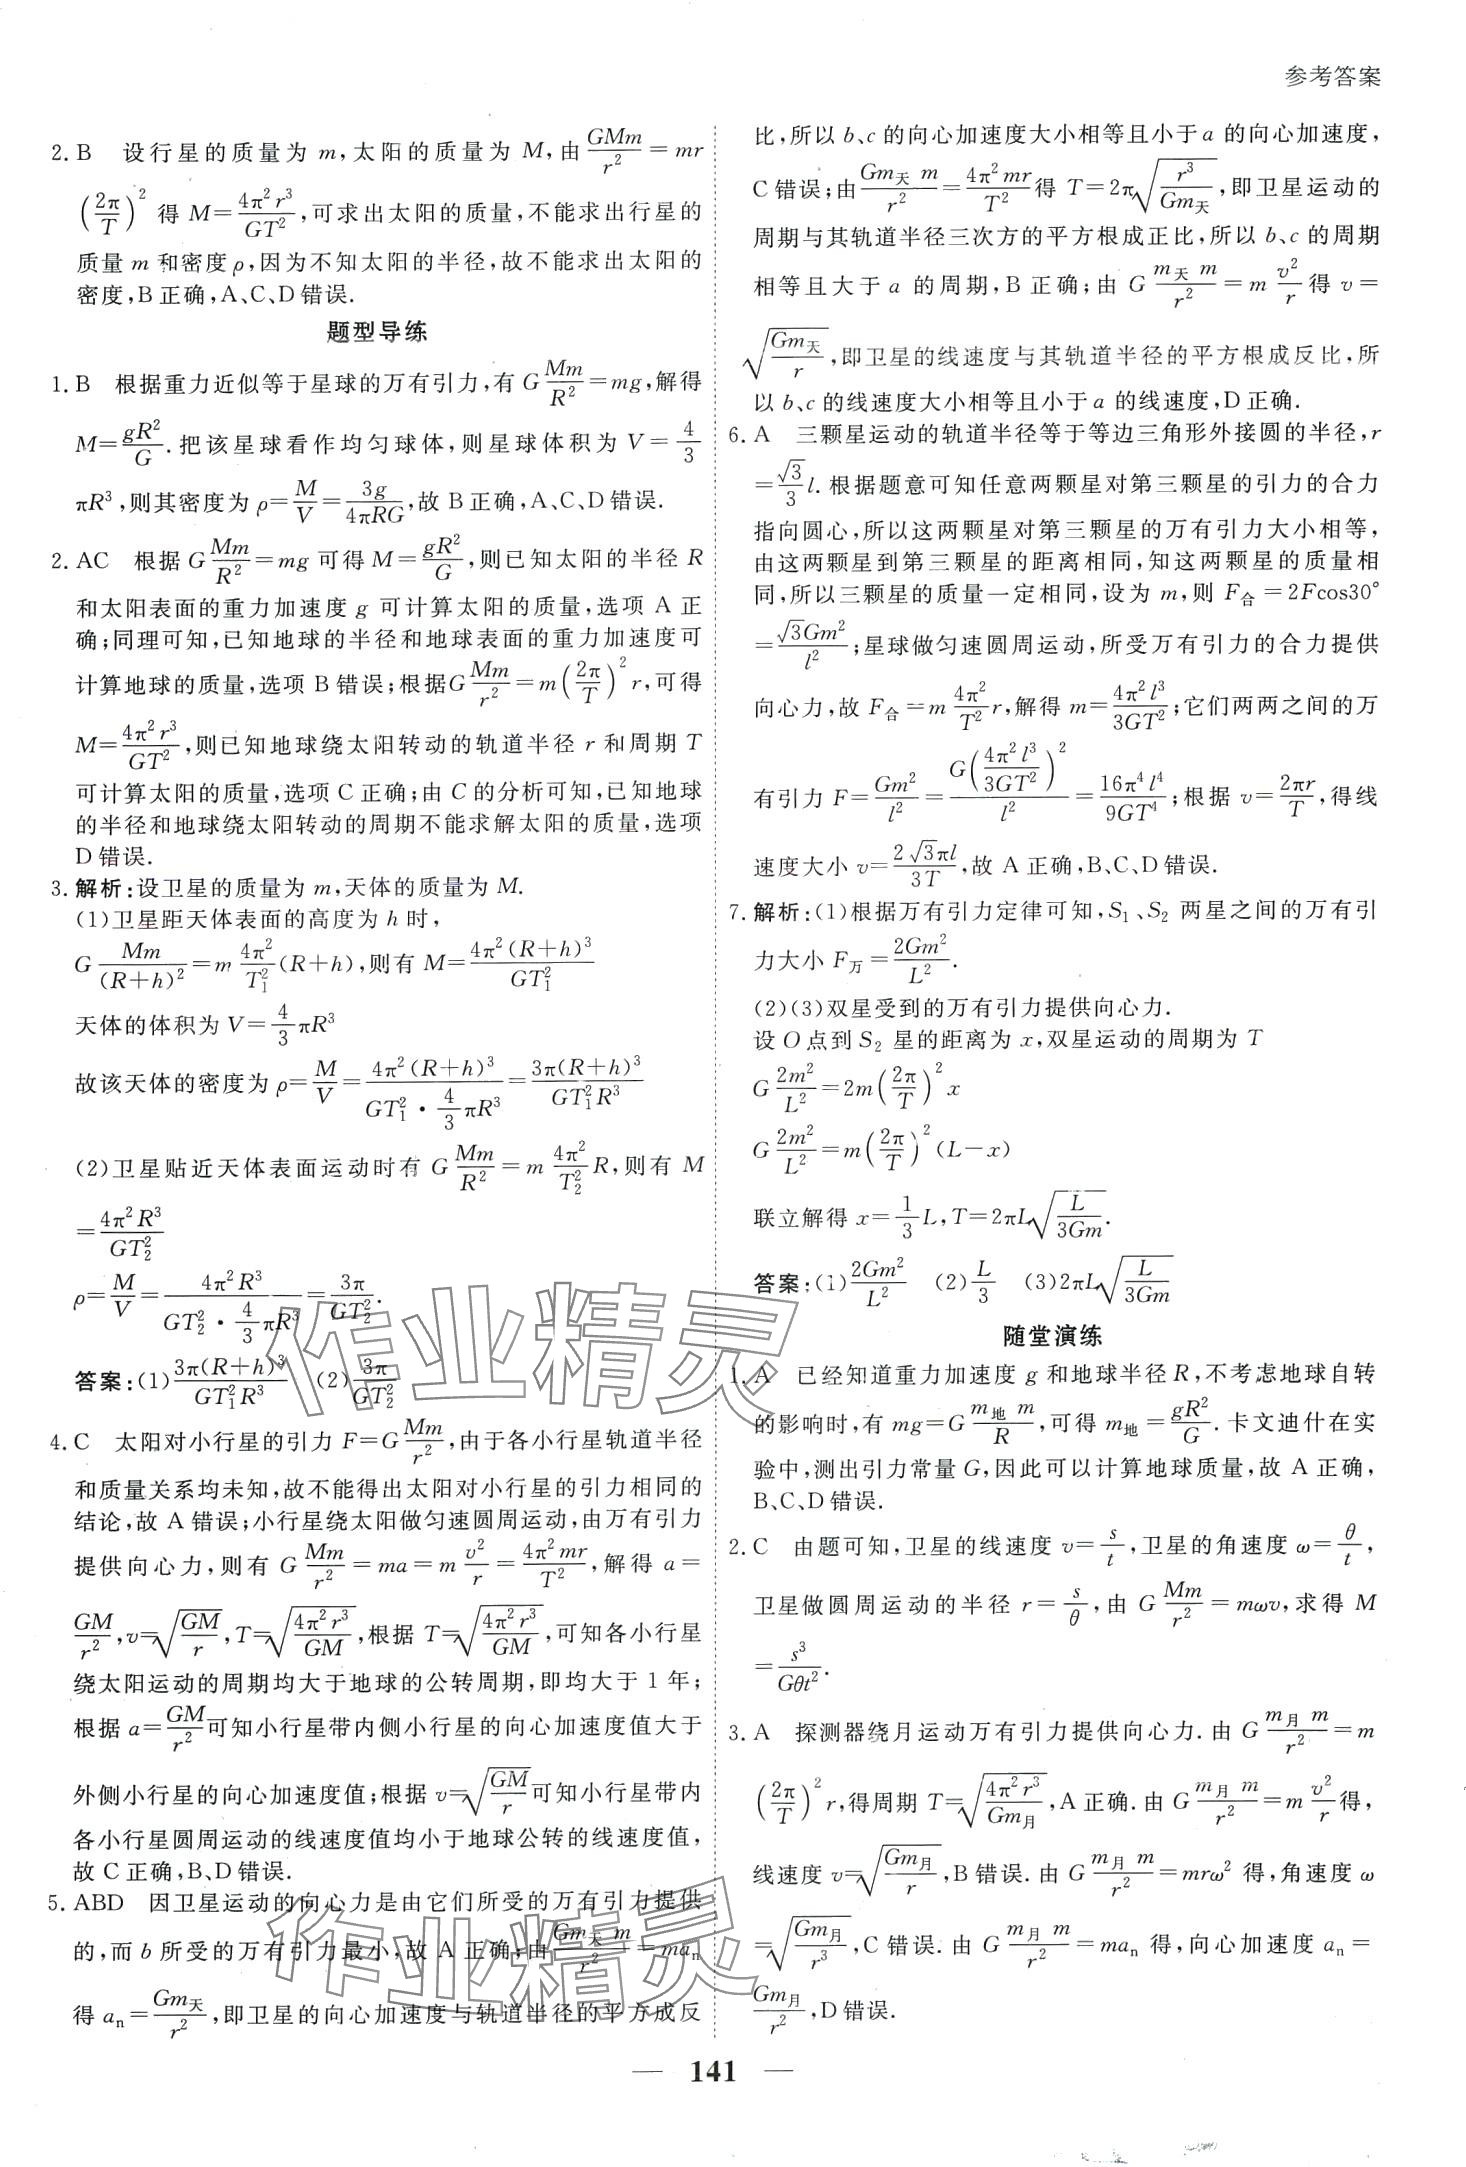 参考答案
2. B 设行星的质量为 m,太阳的质量为 M,由 $\frac{GMm}{r^2}=mr$
$\left(\frac{2\pi}{T}\right)^2$ 得 $M=\frac{4\pi^2r^3}{GT^2}$,可求出太阳的质量,不能求出行星的
质量 m 和密度 ρ,因为不知太阳的半径,故不能求出太阳的
密度,B 正确,A、C、D 错误.
题型导练
1. B 根据重力近似等于星球的万有引力,有 $G\frac{Mm}{R^2}=mg$,解得
$M=\frac{gR^2}{G}$.把该星球看作均匀球体,则星球体积为 $V=\frac{4}{3}$
$\pi R^3$,则其密度为 $\rho=\frac{M}{V}=\frac{3g}{4\pi RG}$,故 B 正确,A、C、D 错误.
2. AC 根据 $G\frac{Mm}{R^2}=mg$ 可得 $M=\frac{gR^2}{G}$,则已知太阳的半径 R
和太阳表面的重力加速度 g 可计算太阳的质量,选项 A 正
确;同理可知,已知地球的半径和地球表面的重力加速度可
计算地球的质量,选项 B 错误;根据 $G\frac{Mm}{r^2}=m\left(\frac{2\pi}{T}\right)^2r$,可得
$M=\frac{4\pi^2r^3}{GT^2}$,则已知地球绕太阳转动的轨道半径 r 和周期 T
可计算太阳的质量,选项 C 正确;由 C 的分析可知,已知地球
的半径和地球绕太阳转动的周期不能求解太阳的质量,选项
D 错误.
3. 解析:设卫星的质量为 m,天体的质量为 M.
(1)卫星距天体表面的高度为 h 时,
$G\frac{Mm}{(R+h)^2}=m\frac{4\pi^2}{T_1^2}(R+h)$,则有 $M=\frac{4\pi^2(R+h)^3}{GT_1^2}$
天体的体积为 $V=\frac{4}{3}\pi R^3$
故该天体的密度为 $\rho=\frac{M}{V}=\frac{4\pi^2(R+h)^3}{GT_1^2\cdot\frac{4}{3}\pi R^3}=\frac{3\pi(R+h)^3}{GT_1^2R^3}$
(2)卫星贴近天体表面运动时有 $G\frac{Mm}{R^2}=m\frac{4\pi^2}{T_2^2}R$,则有 M
$=\frac{4\pi^2R^3}{GT_2^2}$
$\rho=\frac{M}{V}=\frac{4\pi^2R^3}{GT_2^2\cdot\frac{4}{3}\pi R^3}=\frac{3\pi}{GT_2^2}$.
答案:(1)$\frac{3\pi(R+h)^3}{GT_1^2R^3}$ (2)$\frac{3\pi}{GT_2^2}$
4. C 太阳对小行星的引力 $F=G\frac{Mm}{r^2}$,由于各小行星轨道半径
和质量关系均未知,故不能得出太阳对小行星的引力相同的
结论,故 A 错误;小行星绕太阳做匀速圆周运动,由万有引力
提供向心力,则有 $G\frac{Mm}{r^2}=ma=m\frac{v^2}{r}=\frac{4\pi^2mr}{T^2}$,解得 a=
$\frac{GM}{r^2}$,$v=\sqrt{\frac{GM}{r}}$,$T=\sqrt{\frac{4\pi^2r^3}{GM}}$,根据 $T=\sqrt{\frac{4\pi^2r^3}{GM}}$,可知各小行星
绕太阳运动的周期均大于地球的公转周期,即均大于 1 年;
根据 $a=\frac{GM}{r^2}$可知小行星带内侧小行星的向心加速度值大于
外侧小行星的向心加速度值;根据 $v=\sqrt{\frac{GM}{r}}$可知小行星带内
各小行星圆周运动的线速度值均小于地球公转的线速度值,
故 C 正确,B、D 错误.
5. ABD 因卫星运动的向心力是由它们所受的万有引力提供
的,而 b 所受的万有引力最小,故 A 正确;由$\frac{Gm_天m}{r^2}=ma_n$
得 $a_n=\frac{Gm_天}{r^2}$,即卫星的向心加速度与轨道半径的平方成反
比,所以 b、c 的向心加速度大小相等且小于 a 的向心加速度,
C 错误;由$\frac{Gm_天m}{r^2}=\frac{4\pi^2mr}{T^2}$得 $T=2\pi\sqrt{\frac{r^3}{Gm_天}}$,即卫星运动的
周期与其轨道半径三次方的平方根成正比,所以 b、c 的周期
相等且大于 a 的周期,B 正确;由 $G\frac{m_天m}{r^2}=m\frac{v^2}{r}$ 得 v=
$\sqrt{\frac{Gm_天}{r}}$,即卫星的线速度与其轨道半径的平方根成反比,所
以 b、c 的线速度大小相等且小于 a 的线速度,D 正确.
6. A 三颗星运动的轨道半径等于等边三角形外接圆的半径,r
$=\frac{\sqrt{3}}{3}l$.根据题意可知任意两颗星对第三颗星的引力的合力
指向圆心,所以这两颗星对第三颗星的万有引力大小相等,
由这两颗星到第三颗星的距离相同,知这两颗星的质量相
同,所以三颗星的质量一定相同,设为 m,则 $F_合=2F\cos30°$
$=\frac{\sqrt{3}Gm^2}{l^2}$;星球做匀速圆周运动,所受万有引力的合力提供
向心力,故 $F_合=m\frac{4\pi^2}{T^2}r$,解得 $m=\frac{4\pi^2l^3}{3GT^2}$;它们两两之间的万
有引力 $F=\frac{Gm^2}{l^2}=\frac{G\left(\frac{4\pi^2l^3}{3GT^2}\right)^2}{l^2}=\frac{16\pi^4l^4}{9GT^4}$;根据 $v=\frac{2\pi r}{T}$,得线
速度大小 $v=\frac{2\sqrt{3}\pi l}{3T}$,故 A 正确,B、C、D 错误.
7. 解析:(1)根据万有引力定律可知,$S_1$、$S_2$ 两星之间的万有引
力大小 $F_万=\frac{2Gm^2}{L^2}$.
(2)(3)双星受到的万有引力提供向心力.
设 O 点到 $S_2$ 星的距离为 x,双星运动的周期为 T
$G\frac{2m^2}{L^2}=2m\left(\frac{2\pi}{T}\right)^2x$
$G\frac{2m^2}{L^2}=m\left(\frac{2\pi}{T}\right)^2(L-x)$
联立解得 $x=\frac{1}{3}L$,$T=2\pi L\sqrt{\frac{L}{3Gm}}$.
答案:(1)$\frac{2Gm^2}{L^2}$ (2)$\frac{L}{3}$ (3)$2\pi L\sqrt{\frac{L}{3Gm}}$
随堂演练
1. A 已经知道重力加速度 g 和地球半径 R,不考虑地球自转
的影响时,有 $mg=G\frac{m_地m}{R}$,可得 $m_地=\frac{gR^2}{G}$.卡文迪什在实
验中,测出引力常量 G,因此可以计算地球质量,故 A 正确,
B、C、D 错误.
2. C 由题可知,卫星的线速度 $v=\frac{s}{t}$,卫星的角速度 $\omega=\frac{\theta}{t}$,
卫星做圆周运动的半径 $r=\frac{s}{\theta}$,由 $G\frac{Mm}{r^2}=m\omega v$,求得 M
$=\frac{s^3}{G\theta t^2}$.
3. A 探测器绕月运动万有引力提供向心力.由 $G\frac{m_月m}{r^2}=m$
$\left(\frac{2\pi}{T}\right)^2r$,得周期 $T=\sqrt{\frac{4\pi^2r^3}{Gm_月}}$,A 正确.由 $G\frac{m_月m}{r^2}=m\frac{v^2}{r}$得,
线速度 $v=\sqrt{\frac{Gm_月}{r}}$,B 错误.由 $G\frac{m_月m}{r^2}=mr\omega^2$ 得,角速度 ω
$=\sqrt{\frac{Gm_月}{r^3}}$,C 错误.由 $G\frac{m_月m}{r^2}=ma_n$ 得,向心加速度 $a_n=$
$\frac{Gm_月}{r^2}$,D 错误.
作业精灵
作业精灵
— 141 —